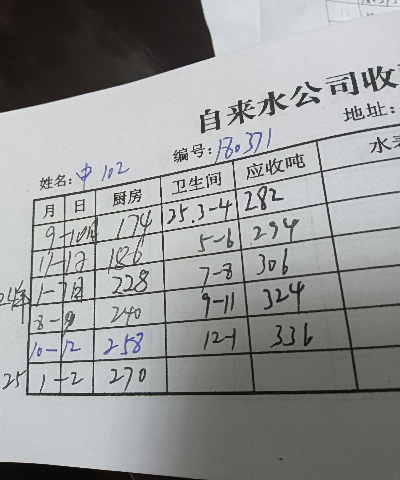 自来水公司收
地址:
姓名: 中 102 编号: 180371
月 日 厨房 卫生间 应收吨 水表
9-10月 174 25.3-4 282
11-12 186 5-6 294
24年 1-7月 228 7-8 306
8-9 240 9-11 324
10-12 258 12-1 336
25 1-2 270